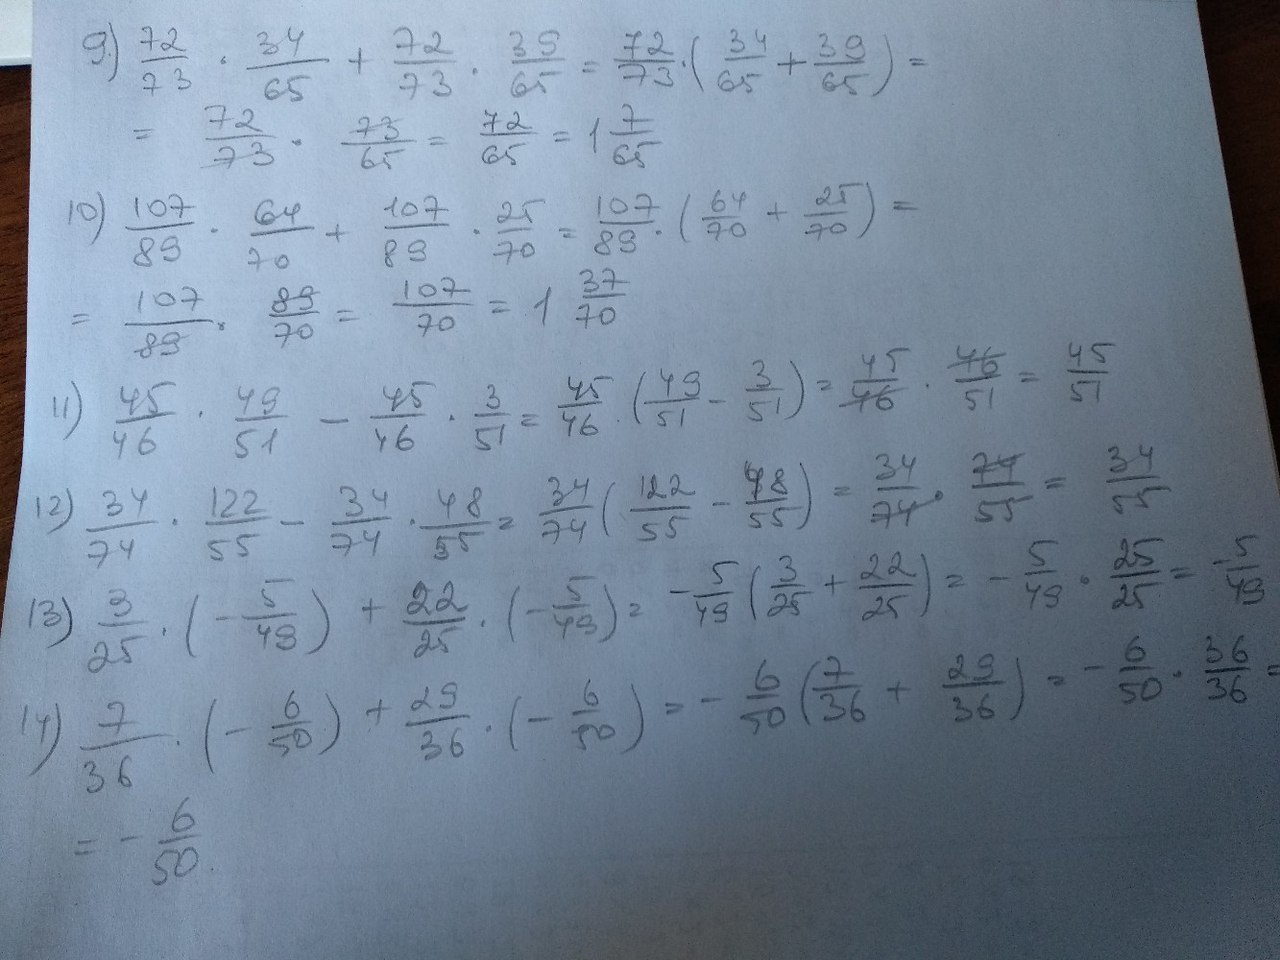 9.) 72/73 · 34/65 + 72/73 · 39/65 = 72/73 · (34/65 + 39/65) =
= 72/73 · 73/65 = 72/65 = 1 7/65
10) 107/89 · 64/70 + 107/89 · 25/70 = 107/89 · (64/70 + 25/70) =
= 107/89 · 89/70 = 107/70 = 1 37/70
11) 45/46 · 49/51 - 45/46 · 3/51 = 45/46 · (49/51 - 3/51) = 45/46 · 46/51 = 45/51
12) 34/74 · 122/55 - 34/74 · 48/55 = 34/74 (122/55 - 48/55) = 34/74 · 74/55 = 34/55
13) 3/25 · (- 5/49) + 22/25 · (- 5/49) = - 5/49 (3/25 + 22/25) = - 5/49 · 25/25 = - 5/49
14) 7/36 · (- 6/50) + 29/36 · (- 6/50) = - 6/50 (7/36 + 29/36) = - 6/50 · 36/36 =
= - 6/50.